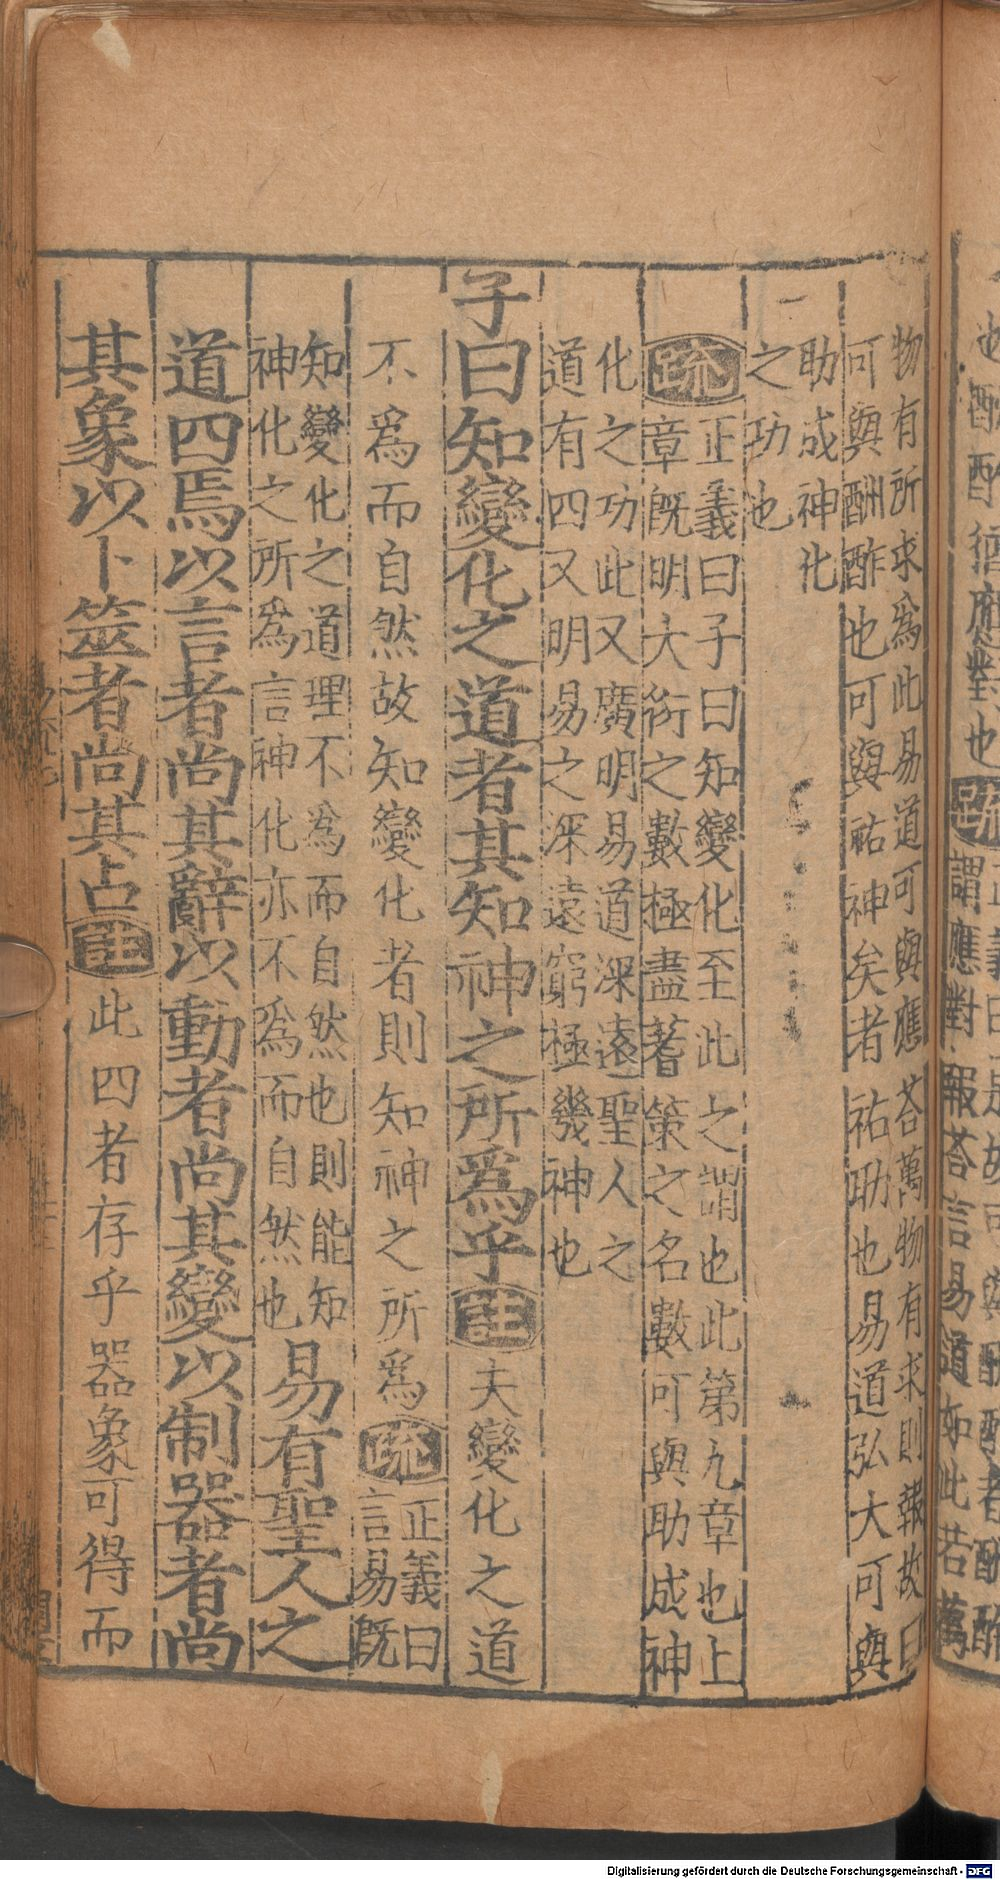 物有所求爲此易道可與應荅萬物有求則報故曰
可與酬酢也可與祐神矣者祐助也易道弘大可與
助成神化
之功也
疏正義曰子曰知變化至此之謂也此第九章也上
章旣明大衍之數極盡蓍策之名數可與助成神
化之功此又廣明易道深遠聖人之
道有四又明易之深遠窮極幾神也
子曰知變化之道者其知神之所爲乎註夫變化之道
不爲而自然故知變化者則知神之所爲疏正義曰
言易旣
知變化之道理不爲而自然也則能知
神化之所爲言神化亦不爲而自然也易有聖人之
道四焉以言者尚其辭以動者尚其變以制器者尚
其象以卜筮者尚其占註此四者存乎器象可得而
也可與酬酢者酬酢
謂應對報荅言易道如此若萬
Digitalisierung gefördert durch die Deutsche Forschungsgemeinschaft - DFG